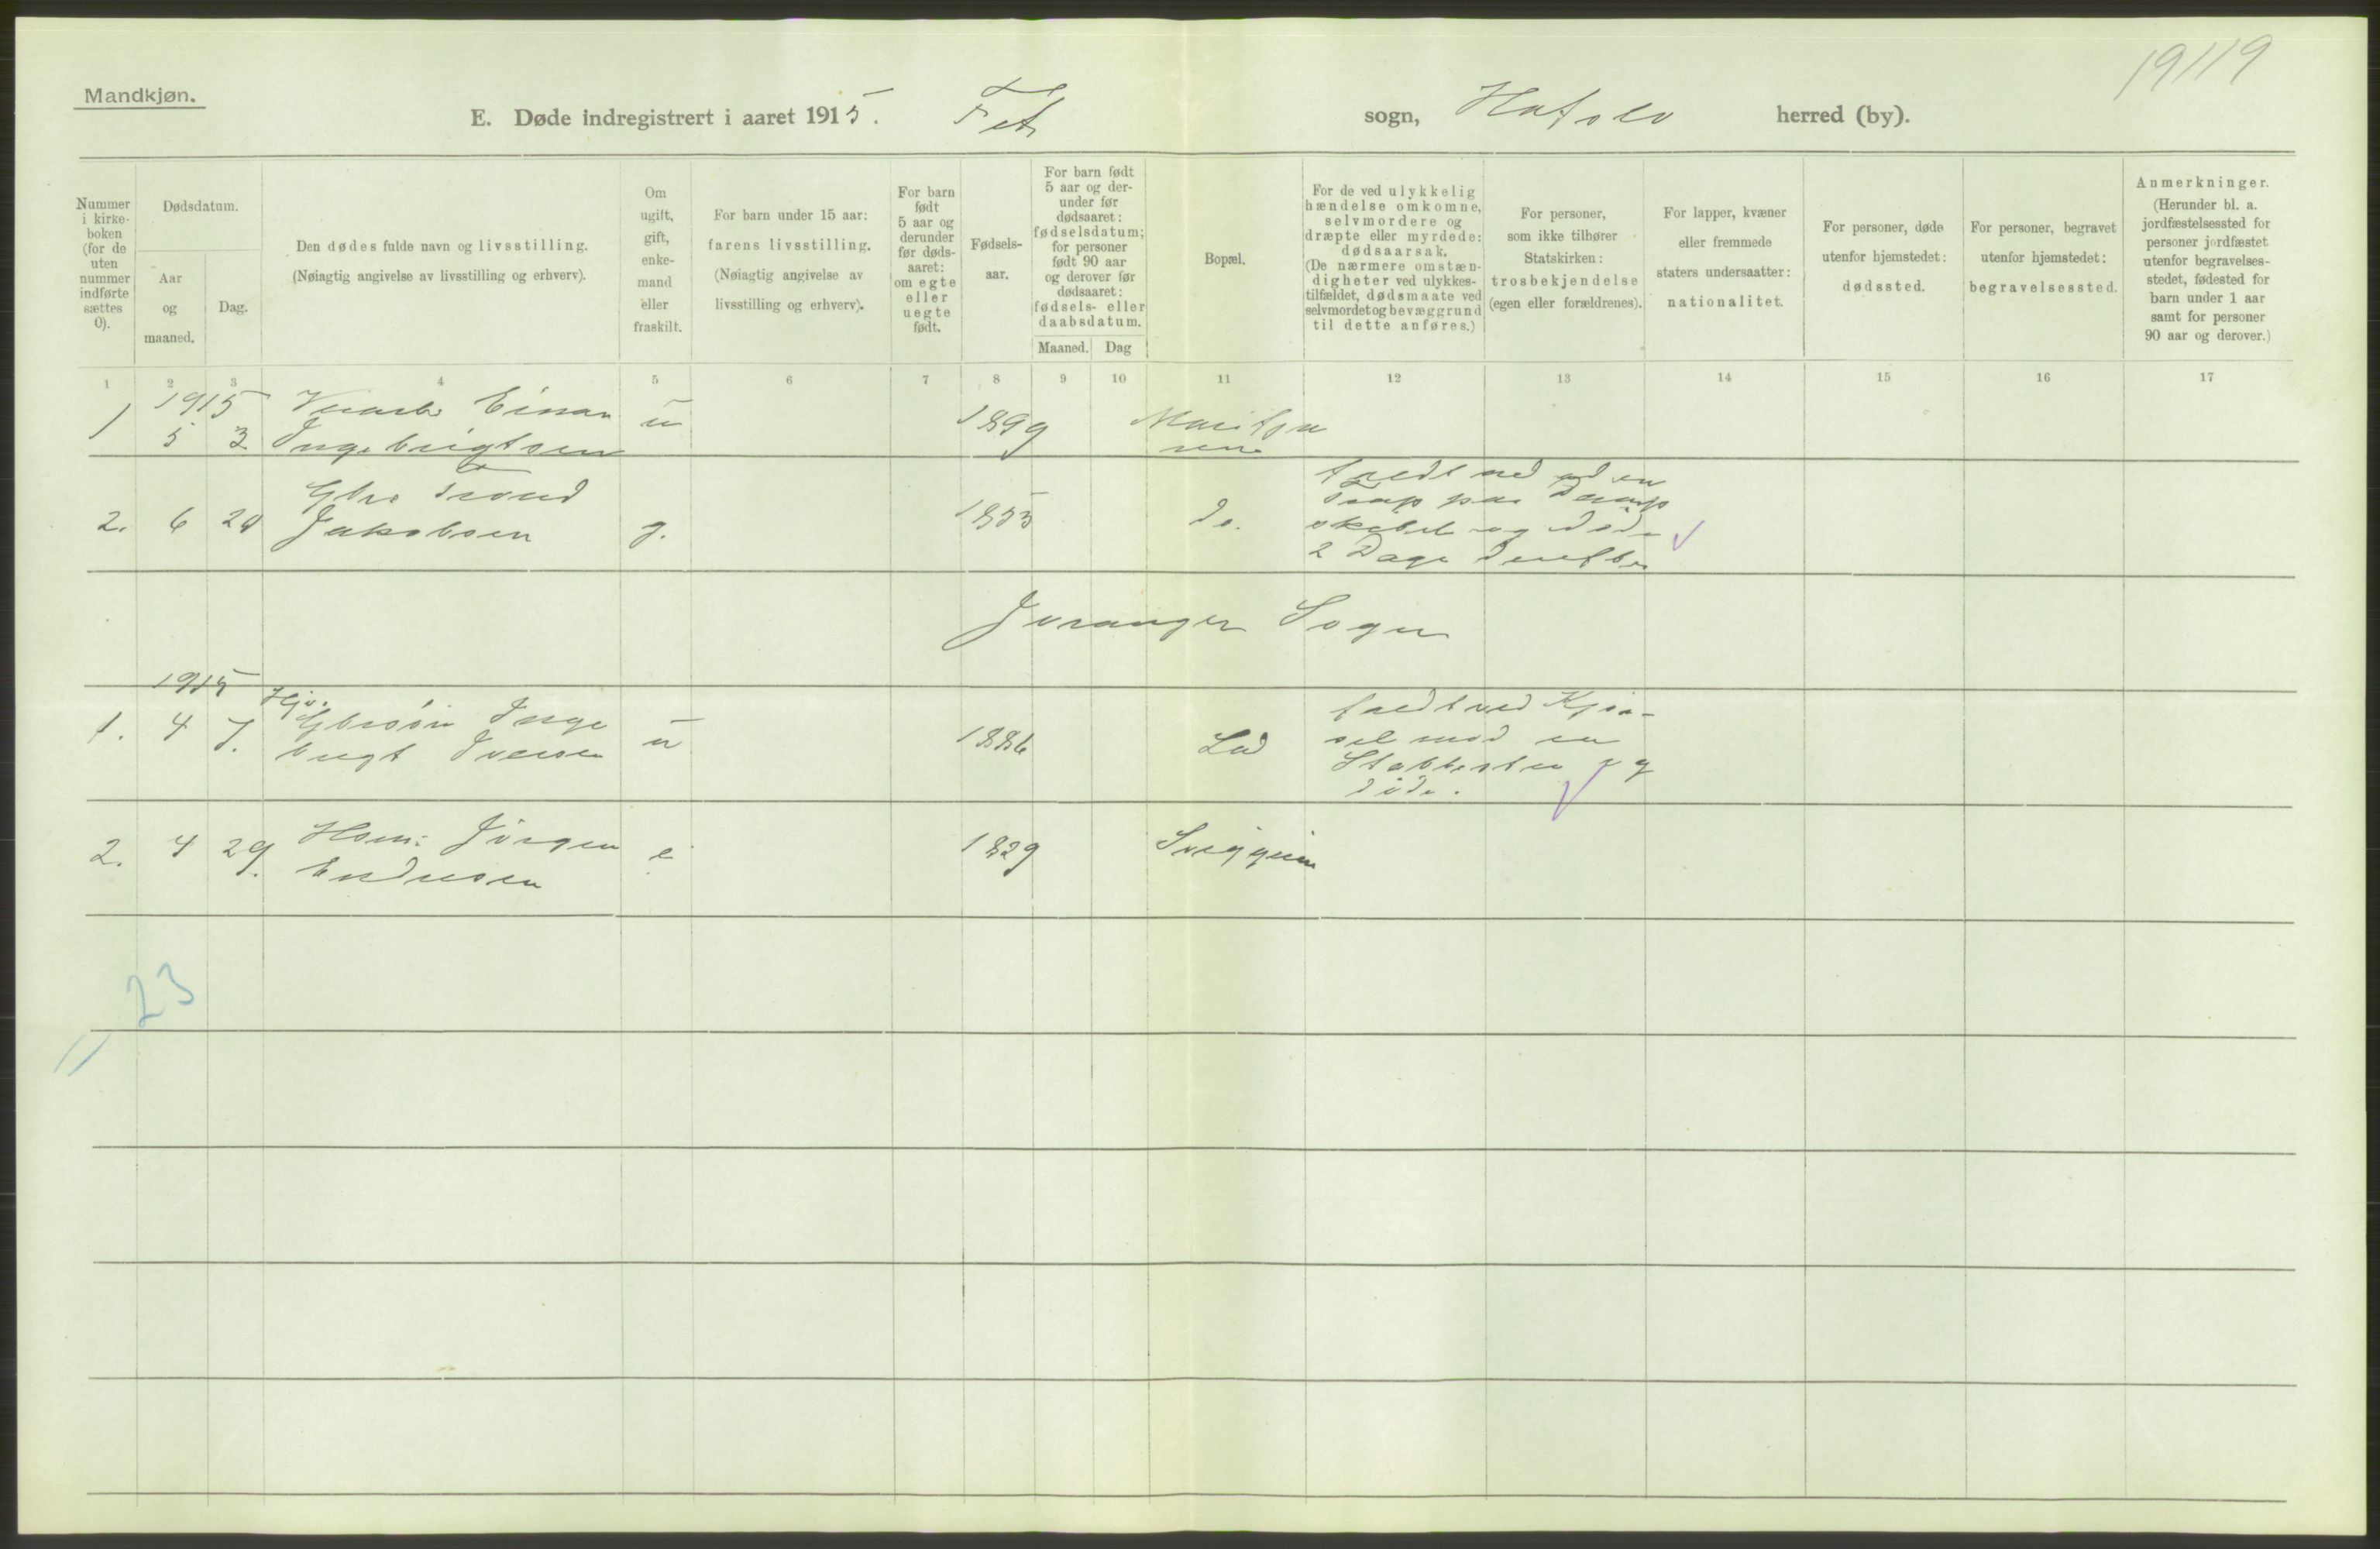 19119
Mandkjøn.
E. Døde indregistrert i aaret 1915. Fet sogn, Hafslo herred (by).
Nummer i kirkeboken (for de uten nummer indførte sættes 0).
Dødsdatum.
Aar og maaned.
Dag.
Den dødes fulde navn og livsstilling.
(Nøiagtig angivelse av livsstilling og erhverv).
Om ugift, gift, enkemand eller fraskilt.
For barn under 15 aar: farens livsstilling.
(Nøiagtig angivelse av livsstilling og erhverv).
For barn født 5 aar og derunder før dødsaaret: om egte eller uegte født.
Fødselsaar.
For barn født 5 aar og derunder før dødsaaret: fødselsdatum; for personer født 90 aar og derover før dødsaaret: fødsels- eller daabsdatum.
Maaned. Dag
Bopæl.
For de ved ulykkelig hændelse omkomne, selvmordere og dræpte eller myrdede: dødsaarsak.
(De nærmere omstændigheter ved ulykkestilfældet, dødsmaate ved selvmordet og bevæggrund til dette anføres.)
For personer, som ikke tilhører Statskirken: trosbekjendelse (egen eller forældrenes).
For lapper, kvæner eller fremmede staters undersaatter: nationalitet.
For personer, døde utenfor hjemstedet: dødssted.
For personer, begravet utenfor hjemstedet: begravelsessted.
Anmerkninger.
(Herunder bl. a. jordfæstelsessted for personer jordfæstet utenfor begravelsesstedet, fødested for barn under 1 aar samt for personer 90 aar og derover.)
1 2 3 4 5 6 7 8 9 10 11 12 13 14 15 16 17
1915
1 5 3 Einar u 1899
Ingebrigtsen
2. 6 20 Gbr. Trond g. 1855 do. faldt ned ad en
Jakobsen Trap paa Damp
skibet og døde
2 Dage derefter
Joranger Sogn
1915
1. 4 7. Gbrsøn Inge u 1886 Lad
brigt Iversen
faldt ved Kjør-
sel mod en
Stabbesten og
døde.
2. 4 29. Jørgen e 1829
Endresen
23